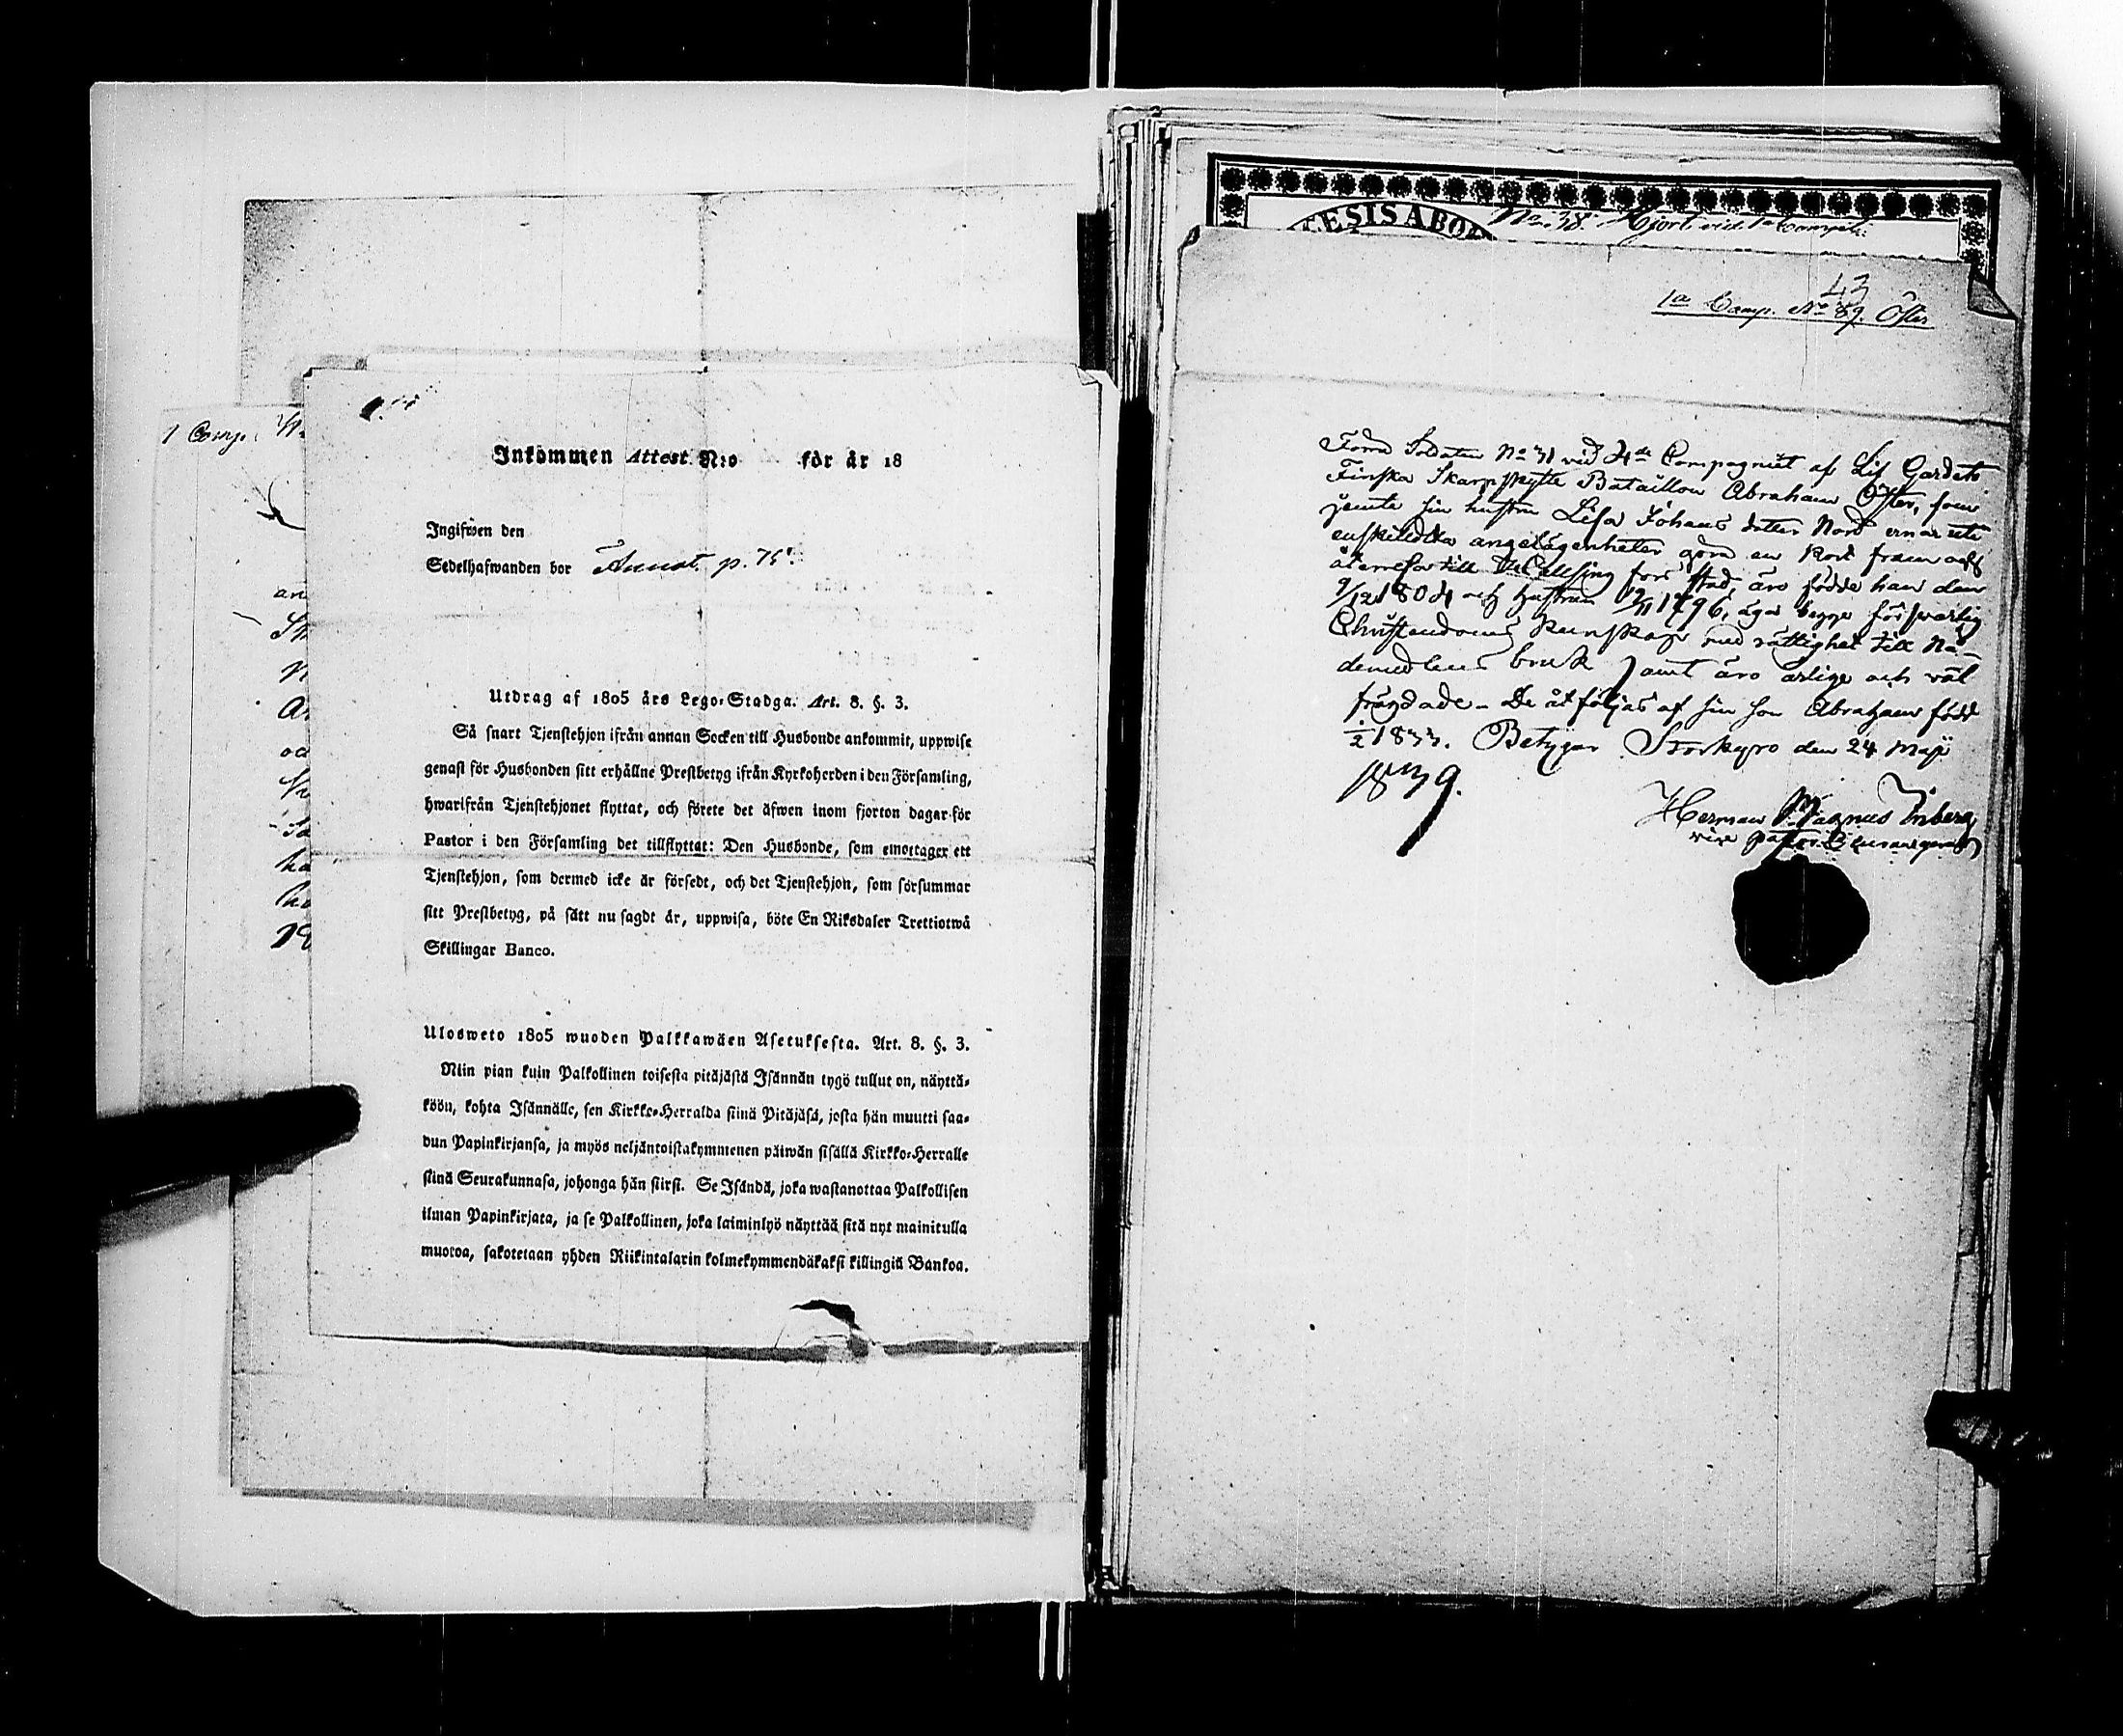 1 Comp.
Inkommen Attest. N:o för år 18
Ingifwen den
Sedelhafwanden bor Annot. p. 75.
Utdrag af 1805 års Lego-Stadga. Art. 8. §. 3.
Så snart Tjenstehjon ifrån annan Socken till Husbonde ankommit, uppwise
genast för Husbonden sitt erhållne Prestbetyg ifrån Kyrkoherden i den Församling,
hwarifrån Tjenstehjonet flyttat, och förete det äfwen inom fjorton dagar för
Pastor i den Församling det tillflyttat: Den Husbonde, som emottager ett
Tjenstehjon, som dermed icke är försedt, och det Tjenstehjon, som försummar
sitt Prestbetyg, på sätt nu sagdt är, uppwisa, böte En Riksdaler Trettiotwå
Skillingar Banco.
Ulosweto 1805 wuoden Palkkawäen Asetuksesta. Art. 8. §. 3.
Niin pian kuin Palkollinen toisesta pitäjästä Isännän tygö tullut on, näyttä-
köön, kohta Isännälle, sen Kirkko-Herralda siinä Pitäjäsä, josta hän muutti saa-
dun Papinkirjansa, ja myös neljäntoistakymmenen päiwän sisällä Kirkko-Herralle
siinä Seurakunnasa, johonga hän siirsi. Se Isändä, joka wastanottaa Palkollisen
ilman Papinkirjata, ja se Palkollinen, joka laiminlyö näyttää sitä nyt mainitulla
muotoa, sakotetaan yhden Riikintalarin kolmekymmendäkaksi killingiä Bankoa.
CESIS ABO
No 38. Hjort vid 1a Compa:
43
1a Comp. No 89. Öster
Förra Soldaten No 31 vid 4de Compagniet af Lif Gardets
Finska Skarpskytte Bataillon Abraham Öster, som
jemte sin hustru Lisa Johans dotter Nord ernar uti
enskildta angelägenheter göra en kort fram och
återresa till Helsing fors stad, äro födde han den
9/12 1804 och hustrun 19/11 1796, äga begge försvarlig
Christendoms kunskap med rättighet till Nå-
demedlens bruk samt äro ärlige och väl
frägdade - De åtföljas af sin son Abraham född
1/2 1833. Betygar Storkyro den 24 Maji
1839.
Herman Magnus Inberg
vice pastor